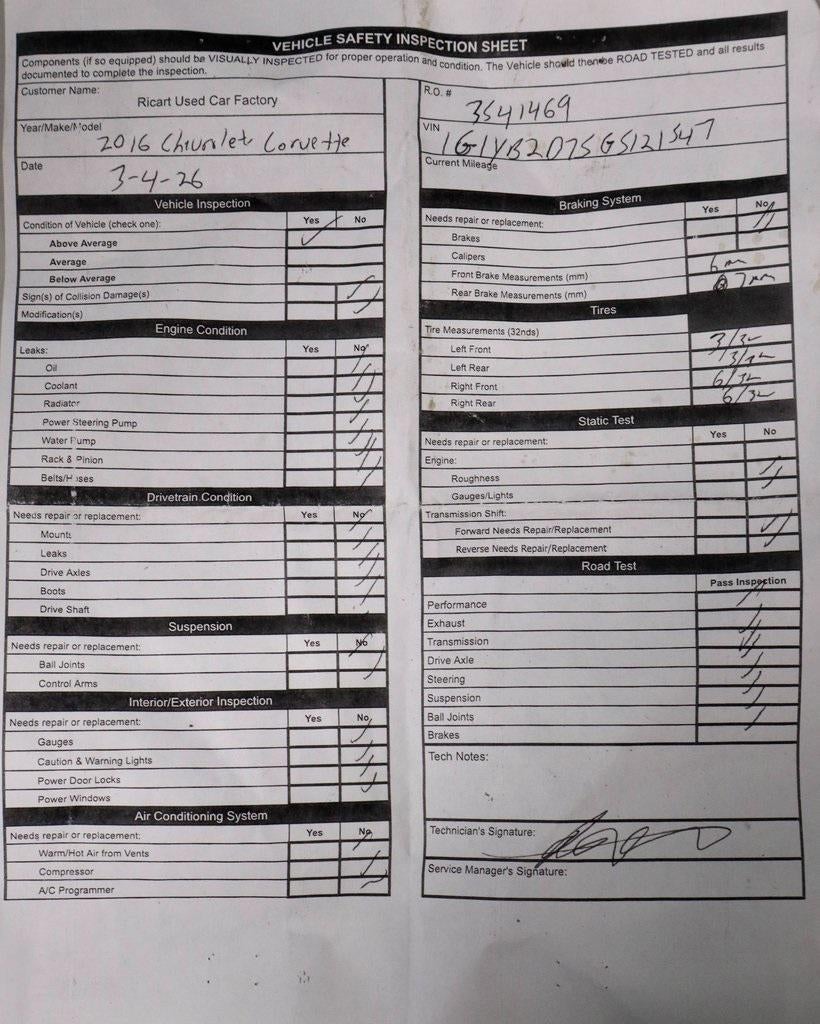 VEHICLE SAFETY INSPECTION SHEET
Components (if so equipped) should be VISUALLY INSPECTED for proper operation and condition. The Vehicle should then be ROAD TESTED and all results
documented to complete the inspection.
Customer Name:
Ricart Used Car Factory
Year/Make/Model
2016 Chevrolet Corvette
Date
3-4-26
Vehicle Inspection
Condition of Vehicle (check one): Yes No
Above Average
Average
Below Average
Sign(s) of Collision Damage(s)
Modification(s)
Engine Condition
Leaks: Yes No
Oil
Coolant
Radiator
Power Steering Pump
Water Pump
Rack & Pinion
Belts/Hoses
Drivetrain Condition
Needs repair or replacement: Yes No
Mounts
Leaks
Drive Axles
Boots
Drive Shaft
Suspension
Needs repair or replacement: Yes No
Ball Joints
Control Arms
Interior/Exterior Inspection
Needs repair or replacement: Yes No
Gauges
Caution & Warning Lights
Power Door Locks
Power Windows
Air Conditioning System
Needs repair or replacement: Yes No
Warm/Hot Air from Vents
Compressor
A/C Programmer
R.O. #
3541469
VIN
1G1YB2D75G5121547
Current Mileage
Braking System
Needs repair or replacement: Yes No
Brakes
Calipers
Front Brake Measurements (mm) 6mm
Rear Brake Measurements (mm) 7mm
Tires
Tire Measurements (32nds)
Left Front 3/32
Left Rear 3/32
Right Front 6/32
Right Rear 6/32
Static Test
Needs repair or replacement: Yes No
Engine:
Roughness
Gauges/Lights
Transmission Shift:
Forward Needs Repair/Replacement
Reverse Needs Repair/Replacement
Road Test
Pass Inspection
Performance
Exhaust
Transmission
Drive Axle
Steering
Suspension
Ball Joints
Brakes
Tech Notes:
Technician's Signature:
Service Manager's Signature: